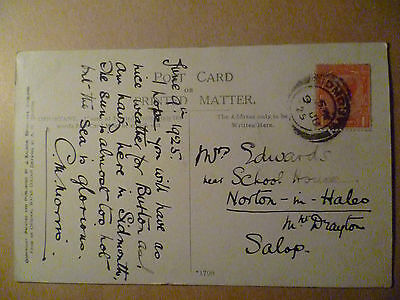 POST CARD
OR
PRINTED MATTER.
The Address only to be
Written Here.
June 9th 1925
I hope you will have as
nice weather for Buxton as I
am having here in Sidmouth,
The sun is almost too hot
but the sea is glorious.
C. M. Morris.
SIDMOUTH
9 JU
25
Mrs Edwards
near School House
Norton-in-Hales
Mkt Drayton
Salop.
*1799